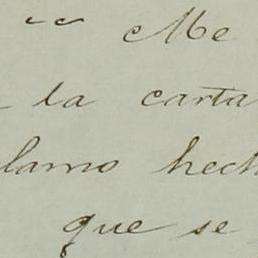 Me
la carta
lamo hech
que se